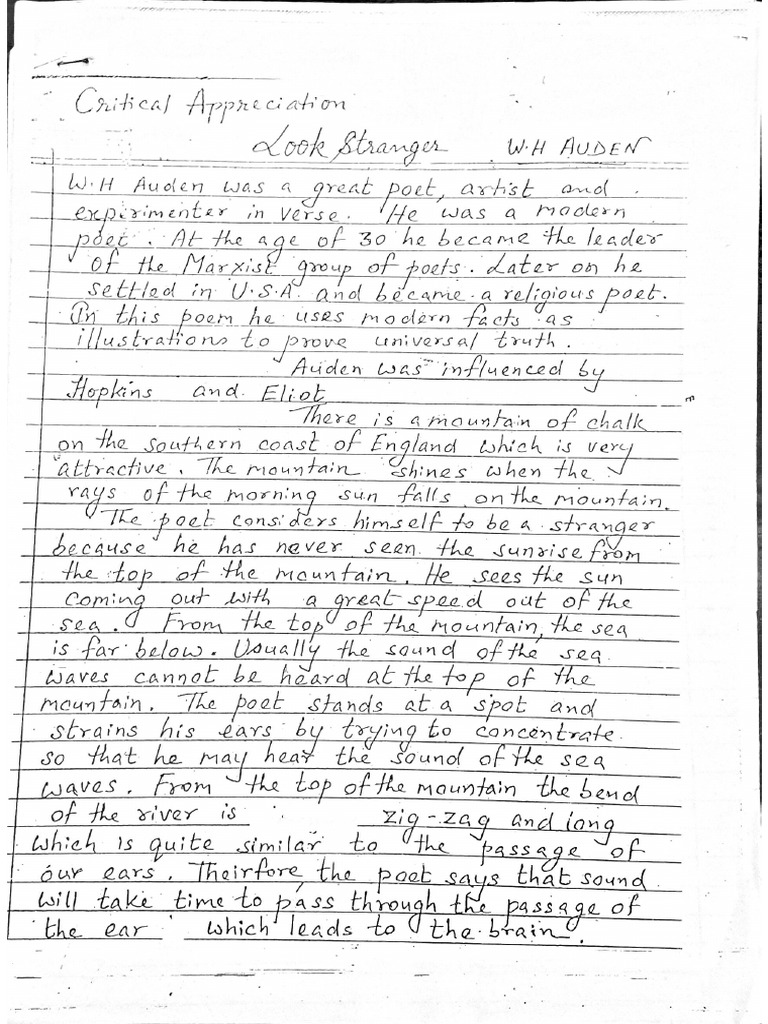 Critical Appreciation
Look Stranger W.H AUDEN
W.H Auden was a great poet, artist and
experimenter in verse. He was a modern
poet. At the age of 30 he became the leader
of the Marxist group of poets. Later on he
settled in U.S.A. and became a religious poet.
In this poem he uses modern facts as
illustrations to prove universal truth.
Auden was influenced by
Hopkins and Eliot
There is a mountain of chalk
on the southern coast of England which is very
attractive. The mountain shines when the
rays of the morning sun falls on the mountain.
The poet considers himself to be a stranger
because he has never seen the sunrise from
the top of the mountain. He sees the sun
coming out with a great speed out of the
sea. From the top of the mountain, the sea
is far below. Usually the sound of the sea
waves cannot be heard at the top of the
mountain. The poet stands at a spot and
strains his ears by trying to concentrate
so that he may hear the sound of the sea
waves. From the top of the mountain the bend
of the river is zig-zag and long
which is quite similar to the passage of
our ears. Theirfore the poet says that sound
will take time to pass through the passage of
the ear which leads to the brain.